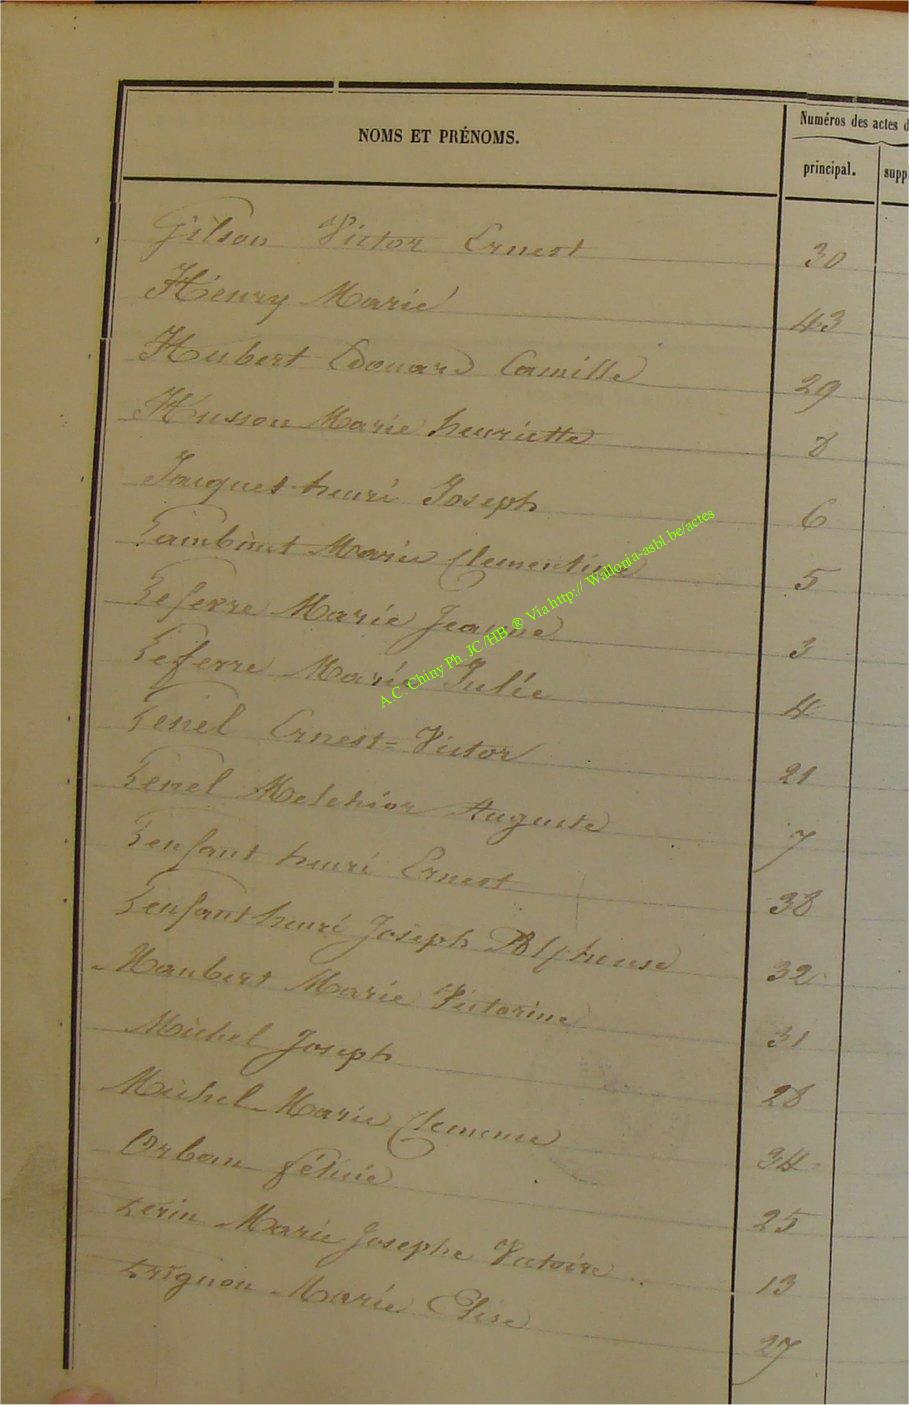 Numéros des actes d
NOMS ET PRÉNOMS.
principal.
supp
Gilson Victor Ernest 30
Henry Marie 43
Hubert Edouard Camille 29
Husson Marie henriette 8
Jacquet henri Joseph 6
Lambinet Marie Clementine 5
Leferre Marie Jeanne 3
Leferre Marie Julie 4
Lenel Ernest=Victor 21
Lenel Melchior Auguste 7
Lenfant henri Ernest 38
Lenfant henri Joseph Alphonse 32
Maubert Marie Victorine 31
Michel Joseph 28
Michel Marie Clemence 34
Orban félicie 25
Marie Josephe Victoire 13
Marie Elise 27
A.C. Chiny Ph. JC/HB ® Via http:// Wallonia-asbl.be/actes